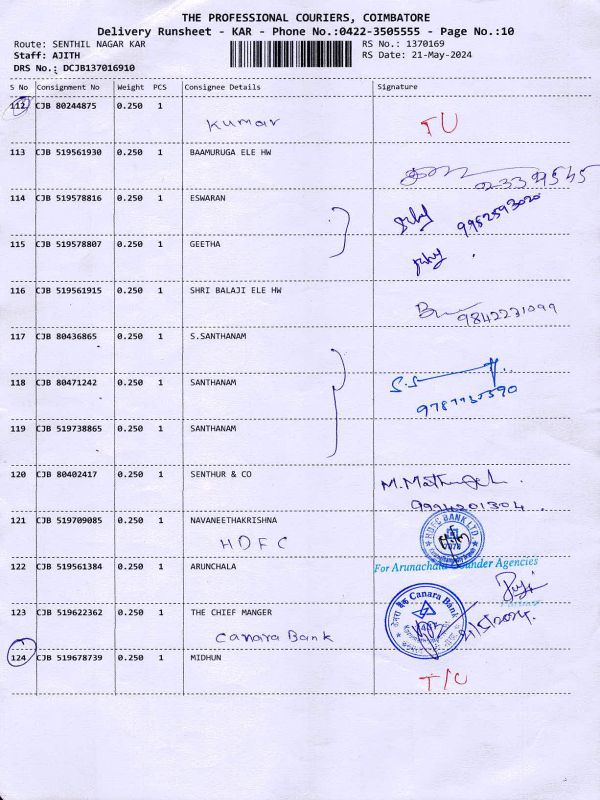 THE PROFESSIONAL COURIERS, COIMBATORE
Delivery Runsheet - KAR - Phone No.:0422-3505555 - Page No.:10
Route: SENTHIL NAGAR KAR
RS No.: 1370169
Staff: AJITH
RS Date: 21-May-2024
DRS No.: DCJB137016910
S No Consignment No Weight PCS Consignee Details Signature
112 CJB 80244875 0.250 1
Kumar TU
113 CJB 519561930 0.250 1 BAAMURUGA ELE HW
114 CJB 519578816 0.250 1 ESWARAN
9952593020
115 CJB 519578807 0.250 1 GEETHA
116 CJB 519561915 0.250 1 SHRI BALAJI ELE HW
9842231099
117 CJB 80436865 0.250 1 S.SANTHANAM
118 CJB 80471242 0.250 1 SANTHANAM
S.S
119 CJB 519738865 0.250 1 SANTHANAM
120 CJB 80402417 0.250 1 SENTHUR & CO
9994201304
121 CJB 519709085 0.250 1 NAVANEETHAKRISHNA
HDFC HDFC BANK LTD.
122 CJB 519561384 0.250 1 ARUNCHALA
For Arunachala Agencies
123 CJB 519622362 0.250 1 THE CHIEF MANGER
Canara Bank Canara Bank
124 CJB 519678739 0.250 1 MIDHUN
T/C